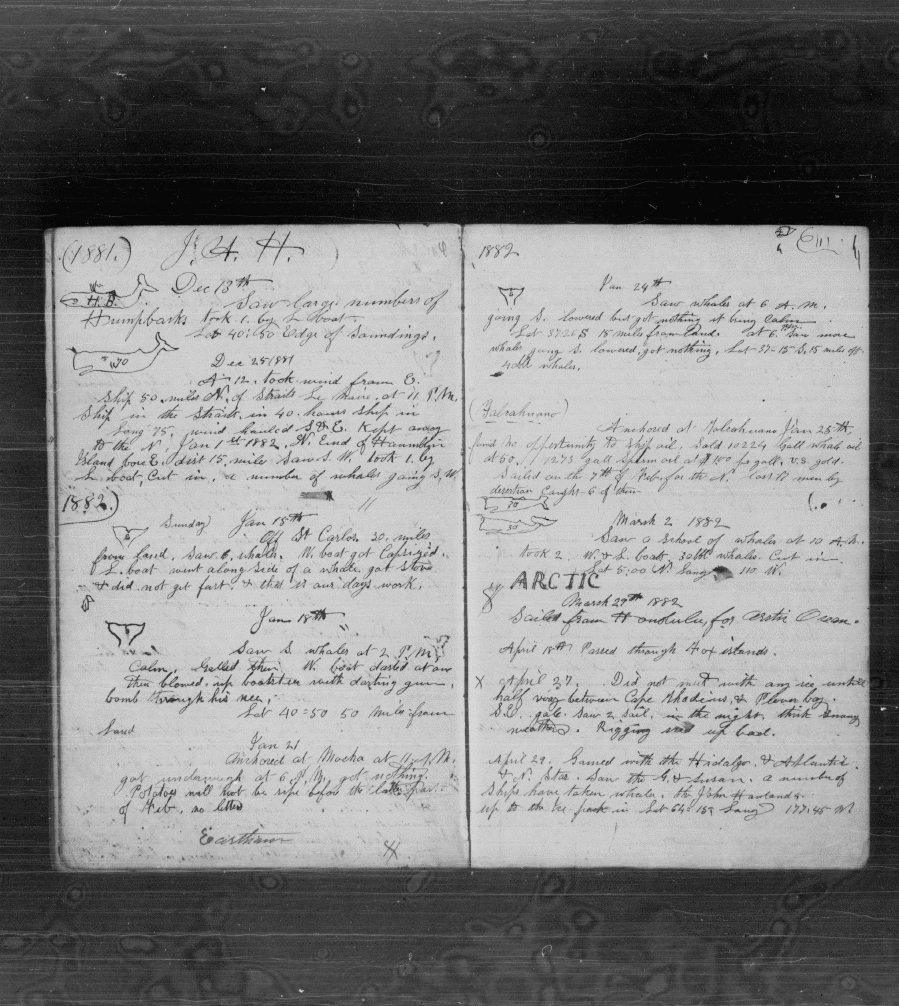 (1881.) J. A. H.
Dec 13th
H. B. Saw large numbers of
Humpbacks took 1. by L boat.
Lat 40:50 Edge of Soundings.
70
Dec 25 1881
At 12. took wind from E.
Ship 50 miles N. of Straits Le Maire. at 11 P.M.
Ship in the Straits. in 40. hours ship in
Long 75. wind hauled S & E. Kept away
to the N. Jan 1st 1882. N. End of
Island bore E. dist 15. mile Saw S. W. took 1. by
boat. Cut in. number of whales going S. W.
1882.)
Sunday Jan 15th
Off St Carlos 30. miles
from land. Saw 6. whales. W. boat got Capsized.
L. boat went along side of a whale got stove
& did not get fast. & that is our days work.
Jan 18th
Saw S whales at 2 P.M.
Calm. Galled them. W. boat darted at one
then blowed up boatsteer with darting gun.
bomb through his nee,
Lat 40=50 50 miles from
land
Jan 21
Anchored at Mocha at 11 P.M.
got underweigh at 6 P.M. got nothing.
Potatoes will not be ripe before the latter part
of Feb. no letters
1882
Jan 24th
Saw whales at 6 A. M.
going S. lowered but got nothing it being Calm
Lat 37-26 S 15 miles from land. at 6 Saw more
whales going S. lowered, got nothing, Lat 37-15 S. 15 miles off.
40 bbl whales.
(Talcahuano)
Anchored at Talcahuano Jan 25th
find no opportunity to ship oil. Sold 10224 Gall whale oil
at 50. 1273 gall Sperm oil at $1.00 pr gall. U.S. gold.
Sailed on the 7th of Feb. for the N. lost 17 men by
desertion Caught 6 of them
70
30
March 2 1882
Saw a School of whales at 10 A. M.
took 2 W. & L. boats 30 bbl whales. Cut in
Lat 5:00 N. Long 110 W.
ARCTIC
March 29th 1882
Sailed from Honolulu, for Arctic Ocean.
April 18th Passed through Fox islands.
X April 27. Did not meet with any ice until
half way between Cape & Plover bay
S.E. gale. Saw 2 Sail. in the night. thick Snowy
weather. Rigging iced up bad.
April 29. Gamed with the Hidalgo. & Atlantic.
& N. Star. Saw the G. & Susan. a number of
Ships have taken whales. the John Howland 2.
up to the ice pack in Lat 64-15, Long 177.45 W.